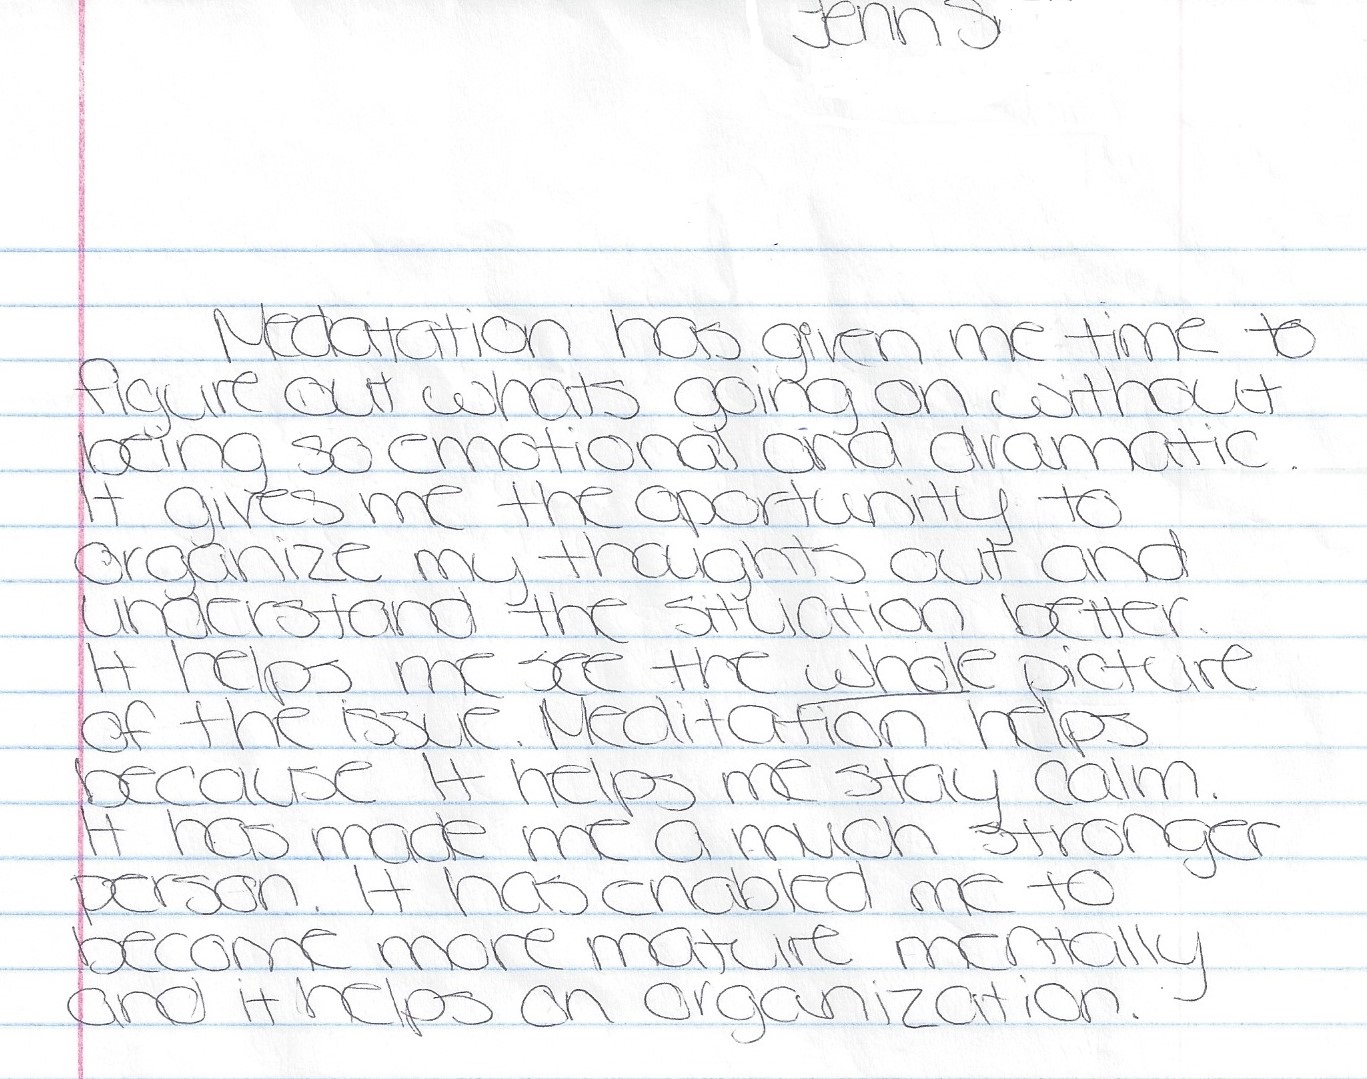 Jenn S.
Medatation has given me time to
figure out whats going on without
being so emotional and dramatic.
It gives me the oportunity to
organize my thoughts out and
understand the situation better.
It helps me see the whole picture
of the issue. Meditation helps
because It helps me stay calm.
It has made me a much stronger
person. It has enabled me to
become more mature mentally
and it helps on organization.